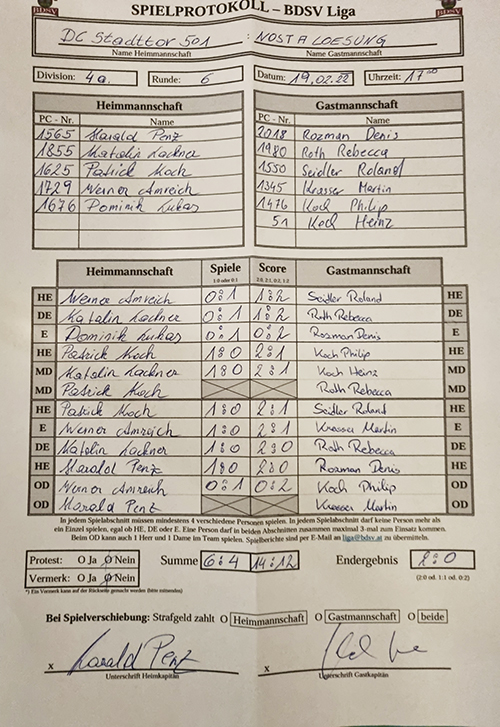 BDSV SPIELPROTOKOLL – BDSV Liga BDSV
DC Stadttor 501 : NOSTALOESUNG
Name Heimmannschaft Name Gastmannschaft
Division: 4a. Runde: 6 Datum: 19.02.22 Uhrzeit: 17⁰⁰
Heimmannschaft Gastmannschaft
PC - Nr. Name PC - Nr. Name
1565 Harald Penz 2018 Rozman Denis
1855 Katalin Lackner 1980 Roth Rebecca
1625 Patrick Koch 1550 Seidler Roland
1729 Werner Amreich 1345 Krasser Martin
1676 Dominik Lukas 1476 Koch Philip
51 Koch Heinz
Heimmannschaft Spiele Score Gastmannschaft
1:0 oder 0:1 2:0, 2:1, 0:2, 1:2
HE Werner Amreich 0:1 1:2 Seidler Roland HE
DE Katalin Lackner 0:1 1:2 Roth Rebecca DE
E Dominik Lukas 0:1 0:2 Rozman Denis E
HE Patrick Koch 1:0 2:1 Koch Philip HE
MD Katalin Lackner 1:0 2:1 Koch Heinz MD
MD Patrick Koch Roth Rebecca MD
HE Patrick Koch 1:0 2:1 Seidler Roland HE
E Werner Amreich 1:0 2:1 Krasser Martin E
DE Katalin Lackner 1:0 2:0 Roth Rebecca DE
HE Harald Penz 1:0 2:0 Rozman Denis HE
OD Werner Amreich 0:1 0:2 Koch Philip OD
OD Harald Penz Krasser Martin OD
In jedem Spielabschnitt müssen mindestens 4 verschiedene Personen spielen. In jedem Spielabschnitt darf keine Person mehr als
ein Einzel spielen, egal ob HE, DE oder E. Eine Person darf in beiden Abschnitten zusammen maximal 3-mal zum Einsatz kommen.
Beim OD kann auch 1 Herr und 1 Dame im Team spielen. Spielberichte sind per E-Mail an liga@bdsv.at zu übermitteln.
Protest: O Ja O Nein Summe 6:4 14:12 Endergebnis 2:0
Vermerk: O Ja O Nein (2:0 od. 1:1 od. 0:2)
*) Ein Vermerk kann auf der Rückseite gemacht werden (bitte umwenden)
Bei Spielverschiebung: Strafgeld zahlt O Heimmannschaft O Gastmannschaft O beide
x Harald Penz x
Unterschrift Heimkapitän Unterschrift Gastkapitän